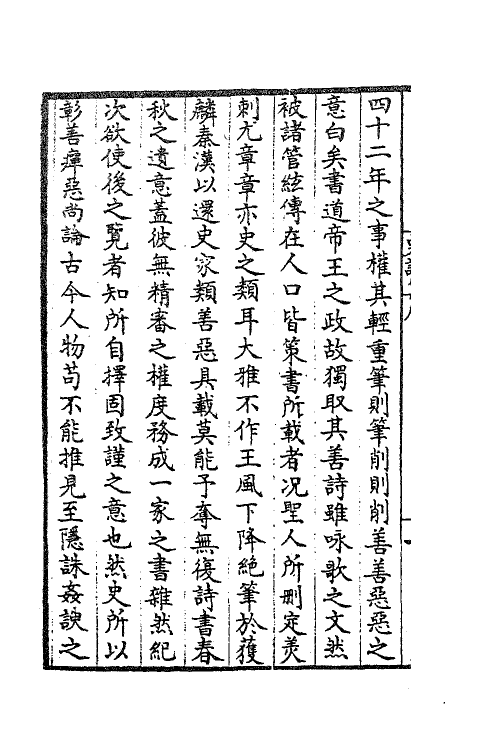 四十二年之事權其輕重筆則筆削則削善善惡惡之
意白矣書道帝王之政故獨取其善詩雖咏歌之文然
被諸管絃傳在人口皆策書所載者况聖人所刪定羙
刺尤章章亦史之類耳大雅不作王風下降絶筆於獲
麟秦漢以還史家類善惡具載莫能予奪無復詩書春
秋之遺意蓋彼無精審之權度務成一家之書雜然紀
次欲使後之覽者知所自擇固致謹之意也然史所以
彰善癉惡尚論古今人物苟不能推見至隱誅姦諛之